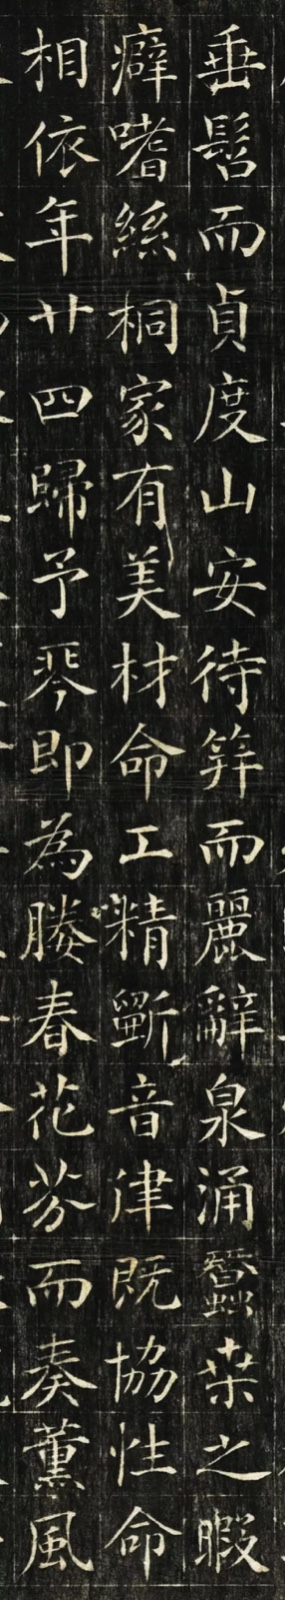 垂髫而貞度山安待筓而麗辭泉涌蠶桒之暇
癖嗜絲桐家有美材命工精斵音律既協性命
相依年廿四歸予琴即為媵春花芬而奏薰風